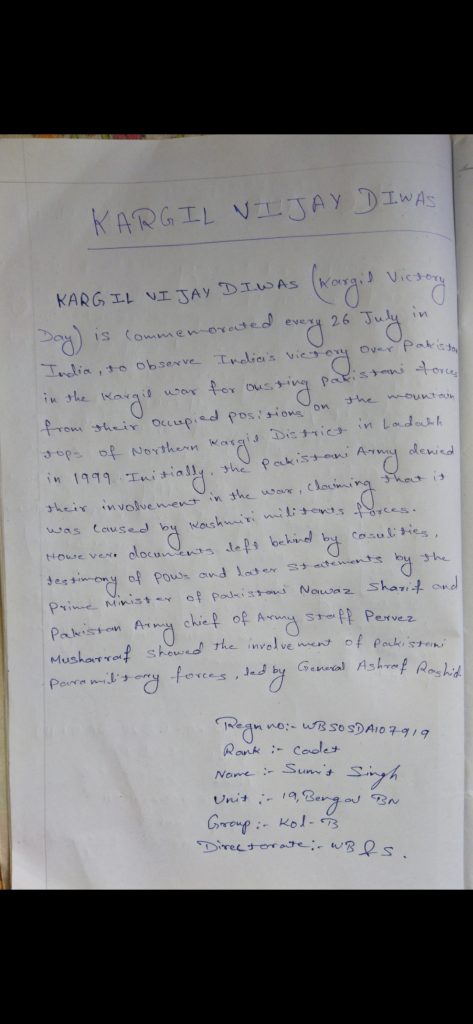 KARGIL VIJAY DIWAS
KARGIL VIJAY DIWAS (Kargil Victory
Day) is commemorated every 26 July in
India, to observe India's victory over Pakistan
in the Kargil war for ousting pakistani forces
from their occupied positions on the mountain
tops of Northern Kargil District in Ladakh
in 1999. Initially, the pakistani Army denied
their involvement in the war, claiming that it
was caused by Kashmiri militants forces.
However documents left behind by casulities,
testimony of POWs and later statements by the
Prime Minister of pakistani Nawaz Sharif and
Pakistan Army chief of Army staff Pervez
Musharraf showed the involvement of pakistani
paramilitary forces, led by General Ashraf Rashid.
Regn no:- WBSOSDA107919
Rank :- Cadet
Name :- Sumit Singh
Unit :- 19, Bengal BN
Group :- Kol-B
Directorate:- WB & S.